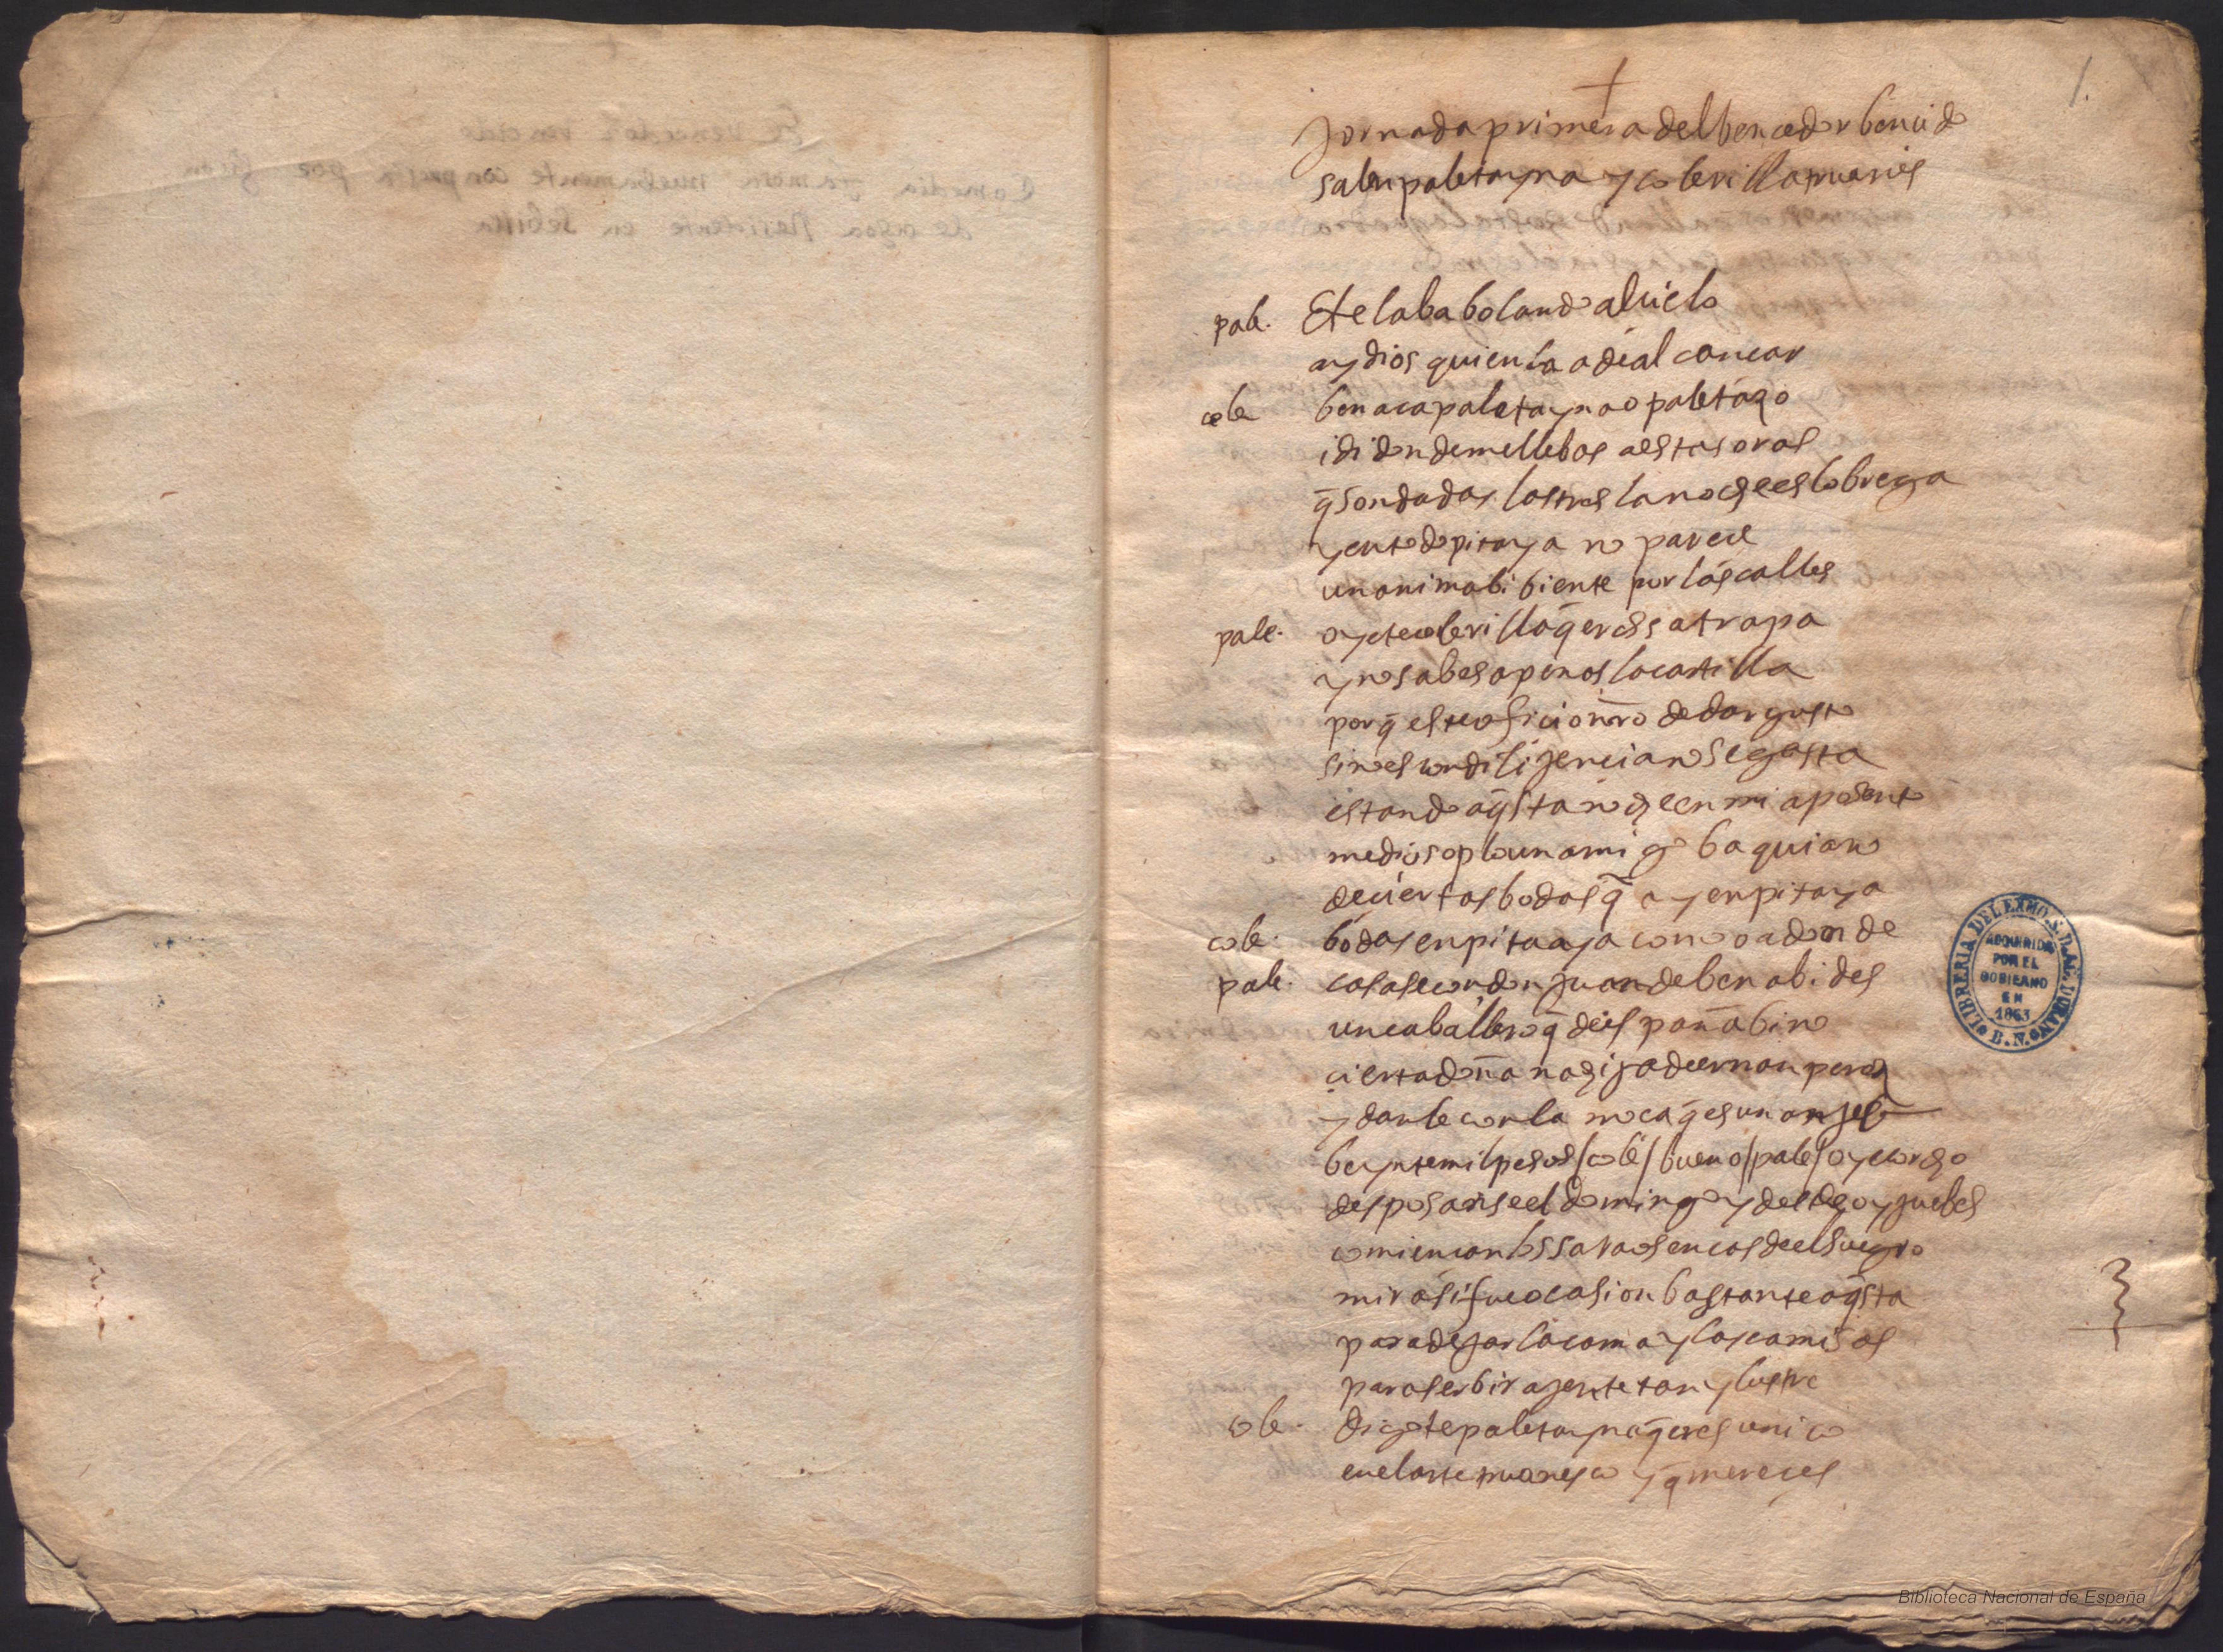 1.
Jornada primera del bencedor bencido
salen paletayna y colerilla truanes
pale. Etelaba bolando al cielo
ay dios quien la a de alcancar
cole ben aca paletayna o paletaço
i di donde me llebas a estas oras
q̄ son dadas las tres la noche es lobrega
y en todo pitaya no parece
un anima bibiente por las calles
pale. oyete colerilla q̄ eres satrapa
y no sabes apenas la cartilla
porq̄ este oficio nr̄o de dar gusto
si no es con dilijencia no se gasta
estando aq̄sta noche en mi aposento
me dio soplo un amigo baquiano
de ciertas bodas q̄ ay en pitaya
cole. bodas en pitaya como o adonde
pale. casase con don juan de benabides
un caballero q̄ de españa bino
cierta doña na hija de ernan perez
y danle con la moca q̄ es un anjel
beynte mil pesos / cole / bueno / pale / oye corcho
desposanse el domingo y desde oy juebes
comiencan los saraos en cas de el suegro
mira si fue ocasion bastante aq̄sta
para dejar la cama y las camisas
para serbir a jente tan ylustre
cole. digote paletayna q̄ eres unico
en el arte truanesco y q̄ mereces
LIBRERIA DEL EXMO. S. D. AG. DURAN
ADQUIRIDA
POR EL
GOBIERNO
EN
1863
B. N.
Biblioteca Nacional de España